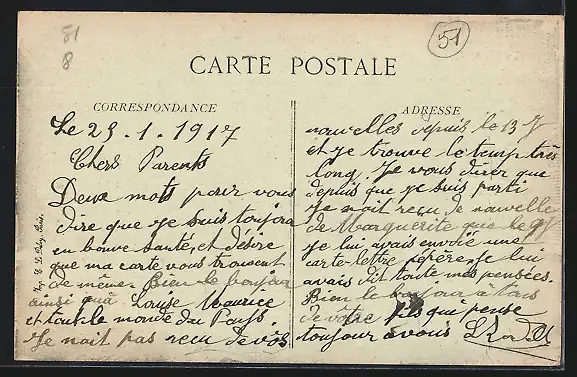 51
8
51
CARTE POSTALE
CORRESPONDANCE
ADRESSE
Le 23.1.1917
Chers Parents
Deux mots pour vous
dire que je suis toujours
en bonne santé, et désire
que ma carte vous trouvent
de même. Bien le bonjour
ainsi qu'à Louise Maurice
et tout le monde du Pays.
Je nait pas recu de vos
nouvelles depuis le 13 J
et je trouve le temp très
long, Je vous direz que
depuis que je suis parti
je nait recu de nouvelle
de Marguerite que le
je lui avais envoié une
carte-lettre je lui
avais dit toute mes pensées.
Bien le bonjour à tous
de votre fils qui pense
toujour a vous